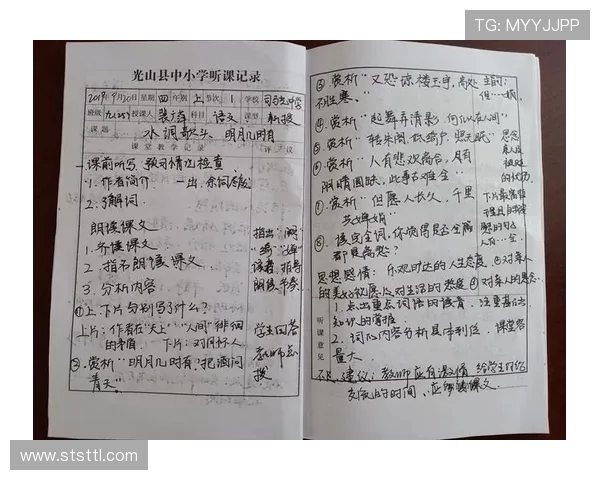 TG: MYYJJPP
光山县中小学听课记录
2019年9月20日 星期四 年级上 节次1 学校
班级九(5) 授课人 科目 语文 课型 新授
课题 水调歌头·明月几时有
课堂教学记录 评议
一.课前听写、预习情况检查
1.作者简介
2.了解词
朗读课文
1.齐读课文
2.指名朗读课文
3.分析内容
①上、下片分别写了什么？
上片：作者在"天上""人间"徘徊
的矛盾 下片：对月怀人
②.赏析"明月几时有，把酒问
青天"
指出
读音，指导
朗读，节奏
学生回答
教师点
拨
③.赏析"又恐琼楼玉宇，高处
不胜寒。"
④.赏析"起舞弄清影，何似在人间"
⑤.赏析"转朱阁，低绮户，照无眠"
⑥.赏析"人有悲欢离合，月有
阴晴圆缺，此事古难全"
⑦.赏析"但愿人长久，千里
共婵娟"
⑧.读完全词，你觉得是否全篇
都是离愁？
思想感情：乐观旷达的人生态度 ②对亲人
的美好祝愿 ③对生活的热爱 ④对亲人的思念
听课意见
1.点出重点词语的读音，注重基础
知识的掌握
2.词的内容分析具体到位，课堂容
量大。
不足、建议：教师应有激情 给学生留给
交流的时间、应 课文
www.ststtl.com